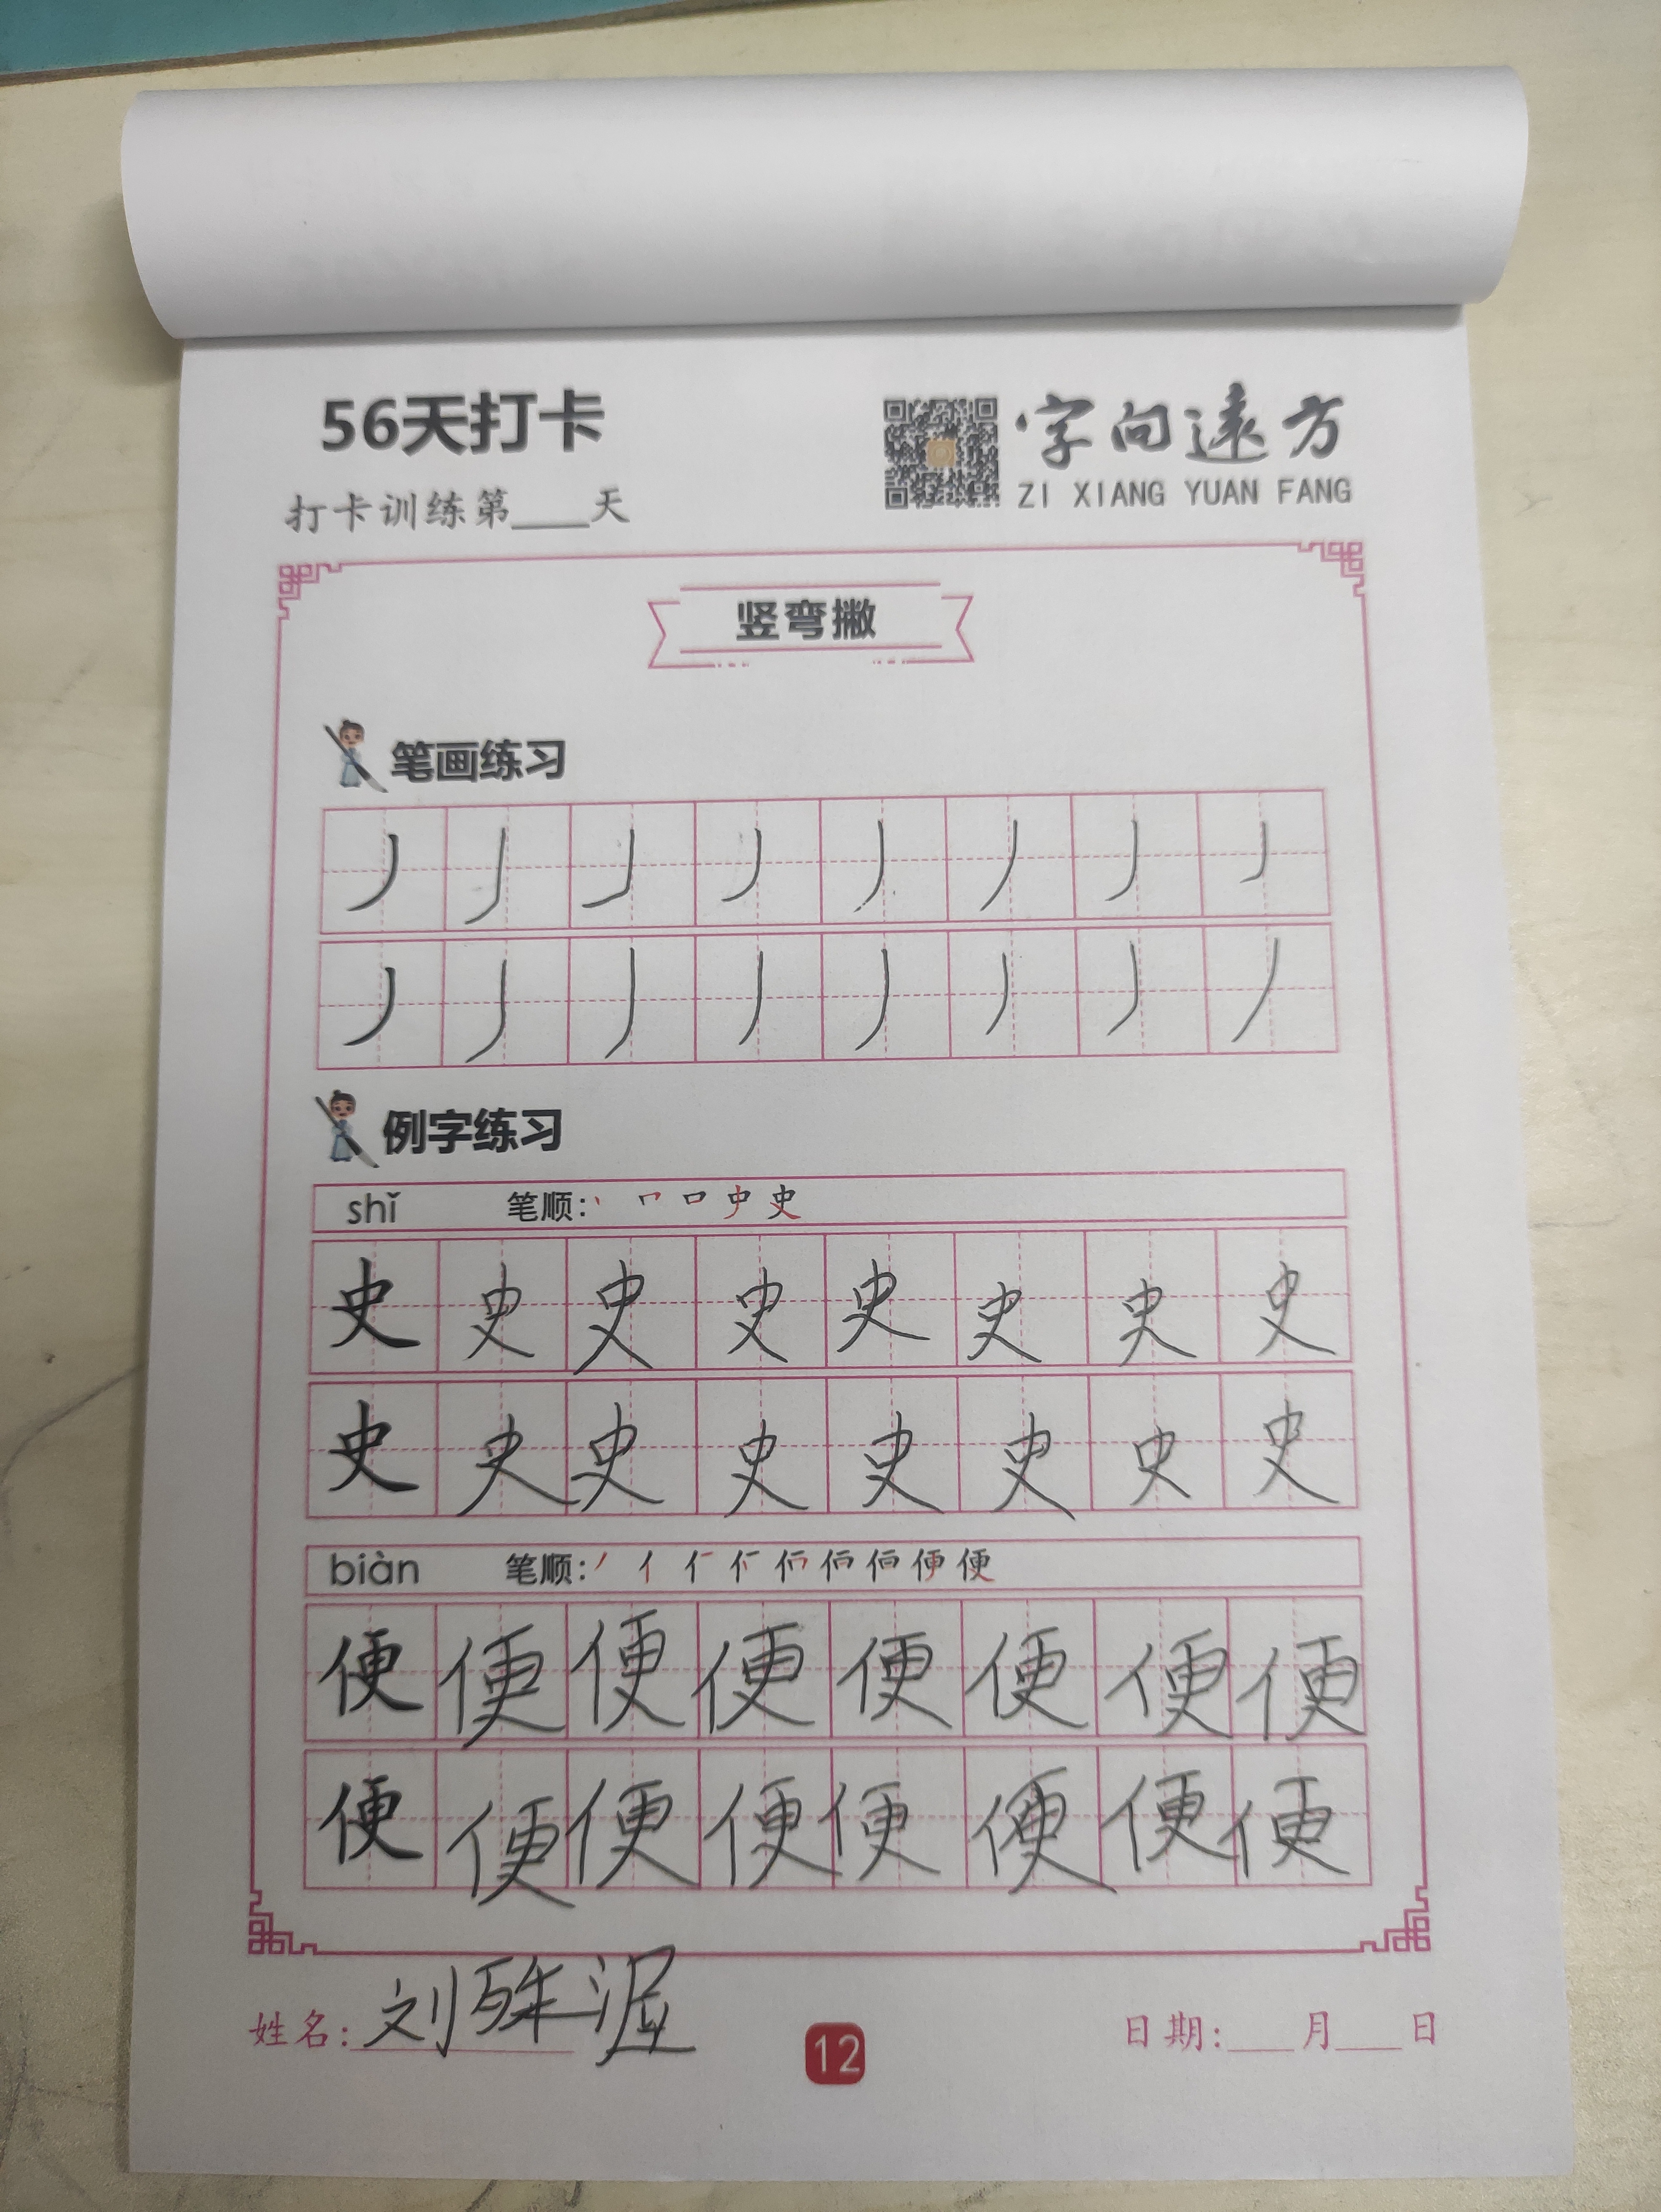 56天打卡
字向遠方
ZI XIANG YUAN FANG
打卡训练第____天
竖弯撇
笔画练习
丿丿丿丿丿丿丿丿
丿丿丿丿丿丿丿丿
例字练习
shǐ 笔顺:
史史史史史史史史
史史史史史史史史
biàn 笔顺:
便便便便便便便便
便便便便便便便便
姓名: 刘
12
日期:___月___日